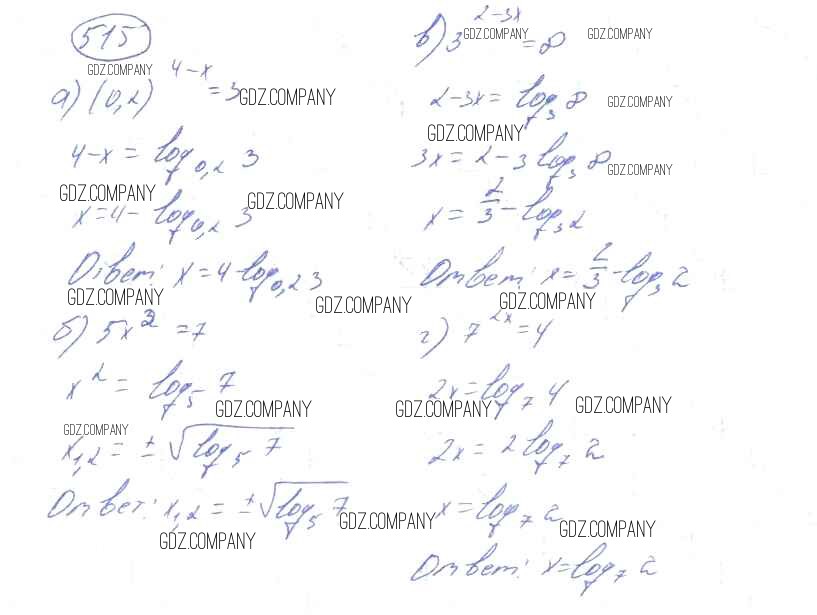 515
GDZ.COMPANY
а) (0,2)^{4-x} = 3 GDZ.COMPANY
4-x = log_{0,2} 3
GDZ.COMPANY GDZ.COMPANY
x=4- log_{0,2} 3
Ответ: x=4-log_{0,2} 3
GDZ.COMPANY GDZ.COMPANY
б) 5x^2 = 7
x^2 = log_5 7
GDZ.COMPANY
GDZ.COMPANY
x_{1,2} = ± √log_5 7
Ответ: x_{1,2} = ± √log_5 7
GDZ.COMPANY GDZ.COMPANY
в) 3^{2-3x} = 8
GDZ.COMPANY GDZ.COMPANY
2-3x = log_3 8 GDZ.COMPANY
GDZ.COMPANY
3x = 2-3 log_3 8 GDZ.COMPANY
x = 2/3 - log_3 2
Ответ: x = 2/3 - log_3 2
GDZ.COMPANY
г) 7^{2x} = 4
2x = log_7 4
GDZ.COMPANY GDZ.COMPANY
2x = 2 log_7 2
x = log_7 2
GDZ.COMPANY
Ответ: x = log_7 2